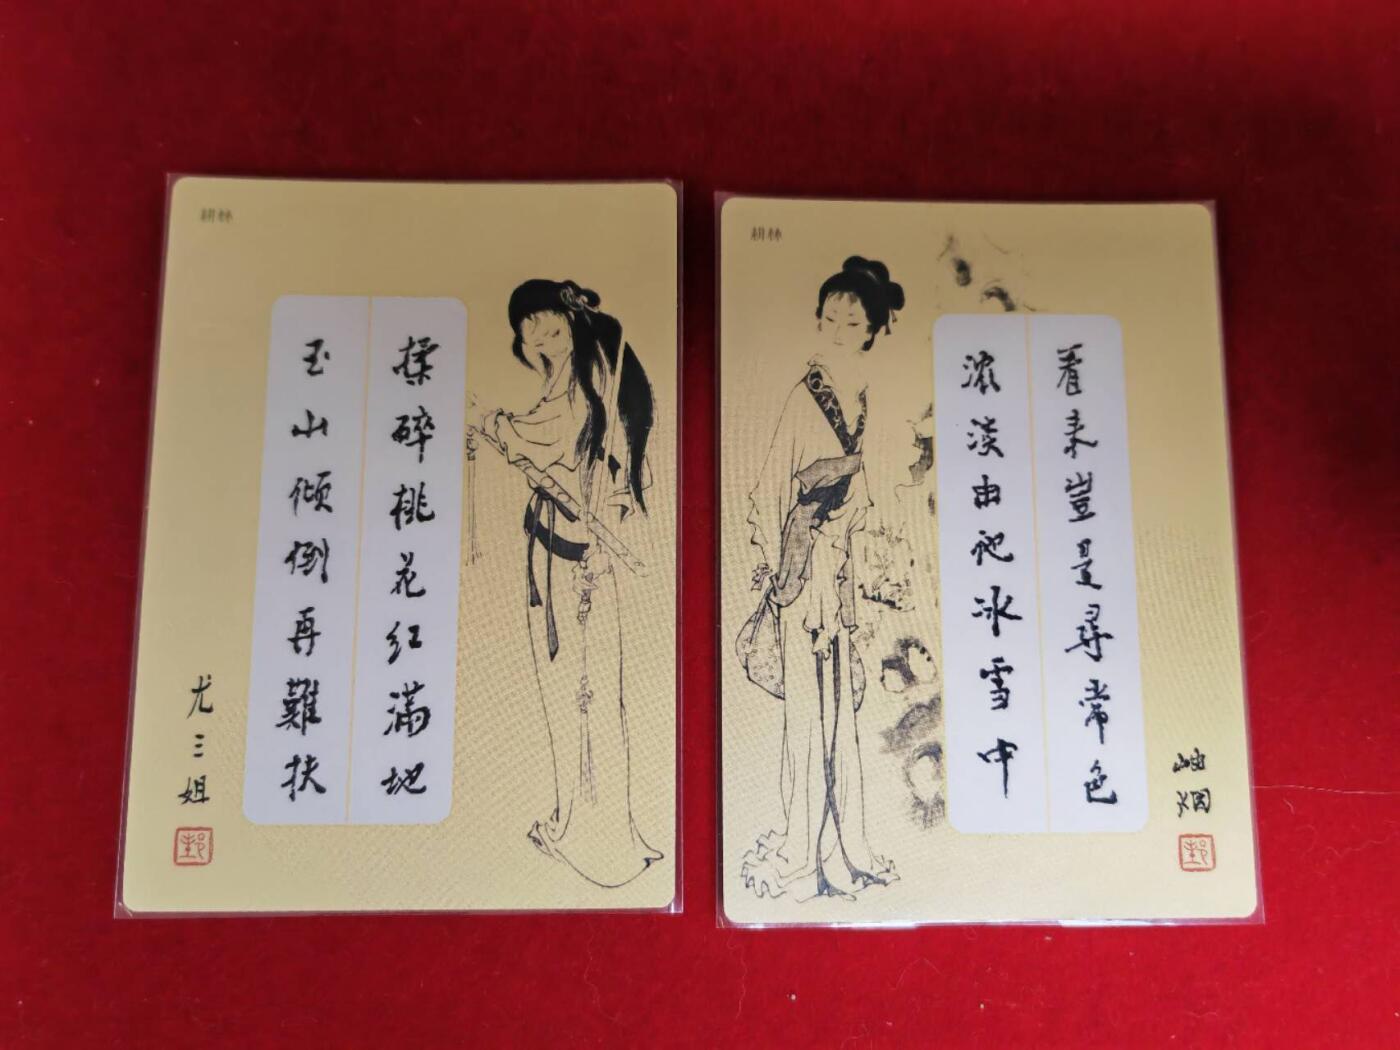 耕林
揉碎桃花红满地
玉山倾倒再難扶
尤三姐
耕林
看来豈是尋常色
浓淡由他冰雪中
岫烟